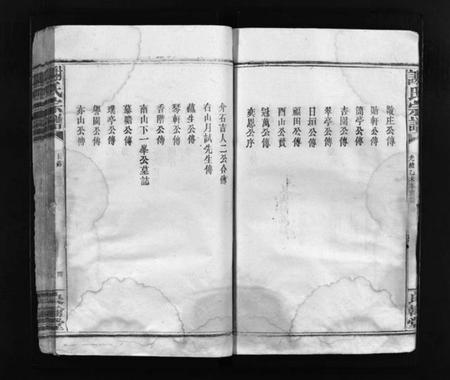 謝氏宗譜
敬莊公傳
貽軒公傳
簡亭公傳
吉園公傳
翠亭公傳
日垣公傳
頤田公傳
西山公贊
冠萬公傳
奕恩公序
介石吉人二公合傳
台山月試先生傳
蘊生公傳
琴軒公傳
香階公傳
南山下一峯公墓誌
慕曦公傳
璞亭公傳
粵園公傳
赤山公傳
謝氏宗譜